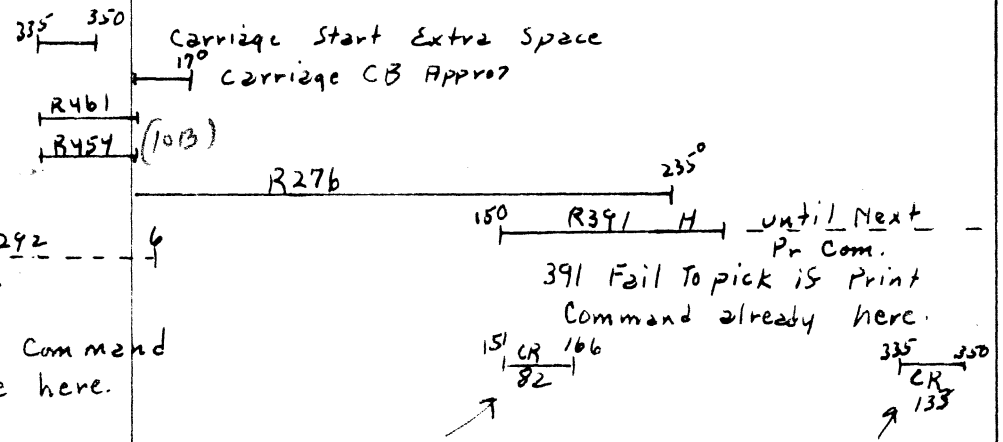 335 350 Carriage Start Extra Space
17° Carriage CB Approx
R461
R454 (10B)
R276 235°
150 R391 H until Next
Pr Com.
292 6
391 Fail To pick if Print
Command already here.
Command
here.
151 CR 166
82
335 350
CR
133